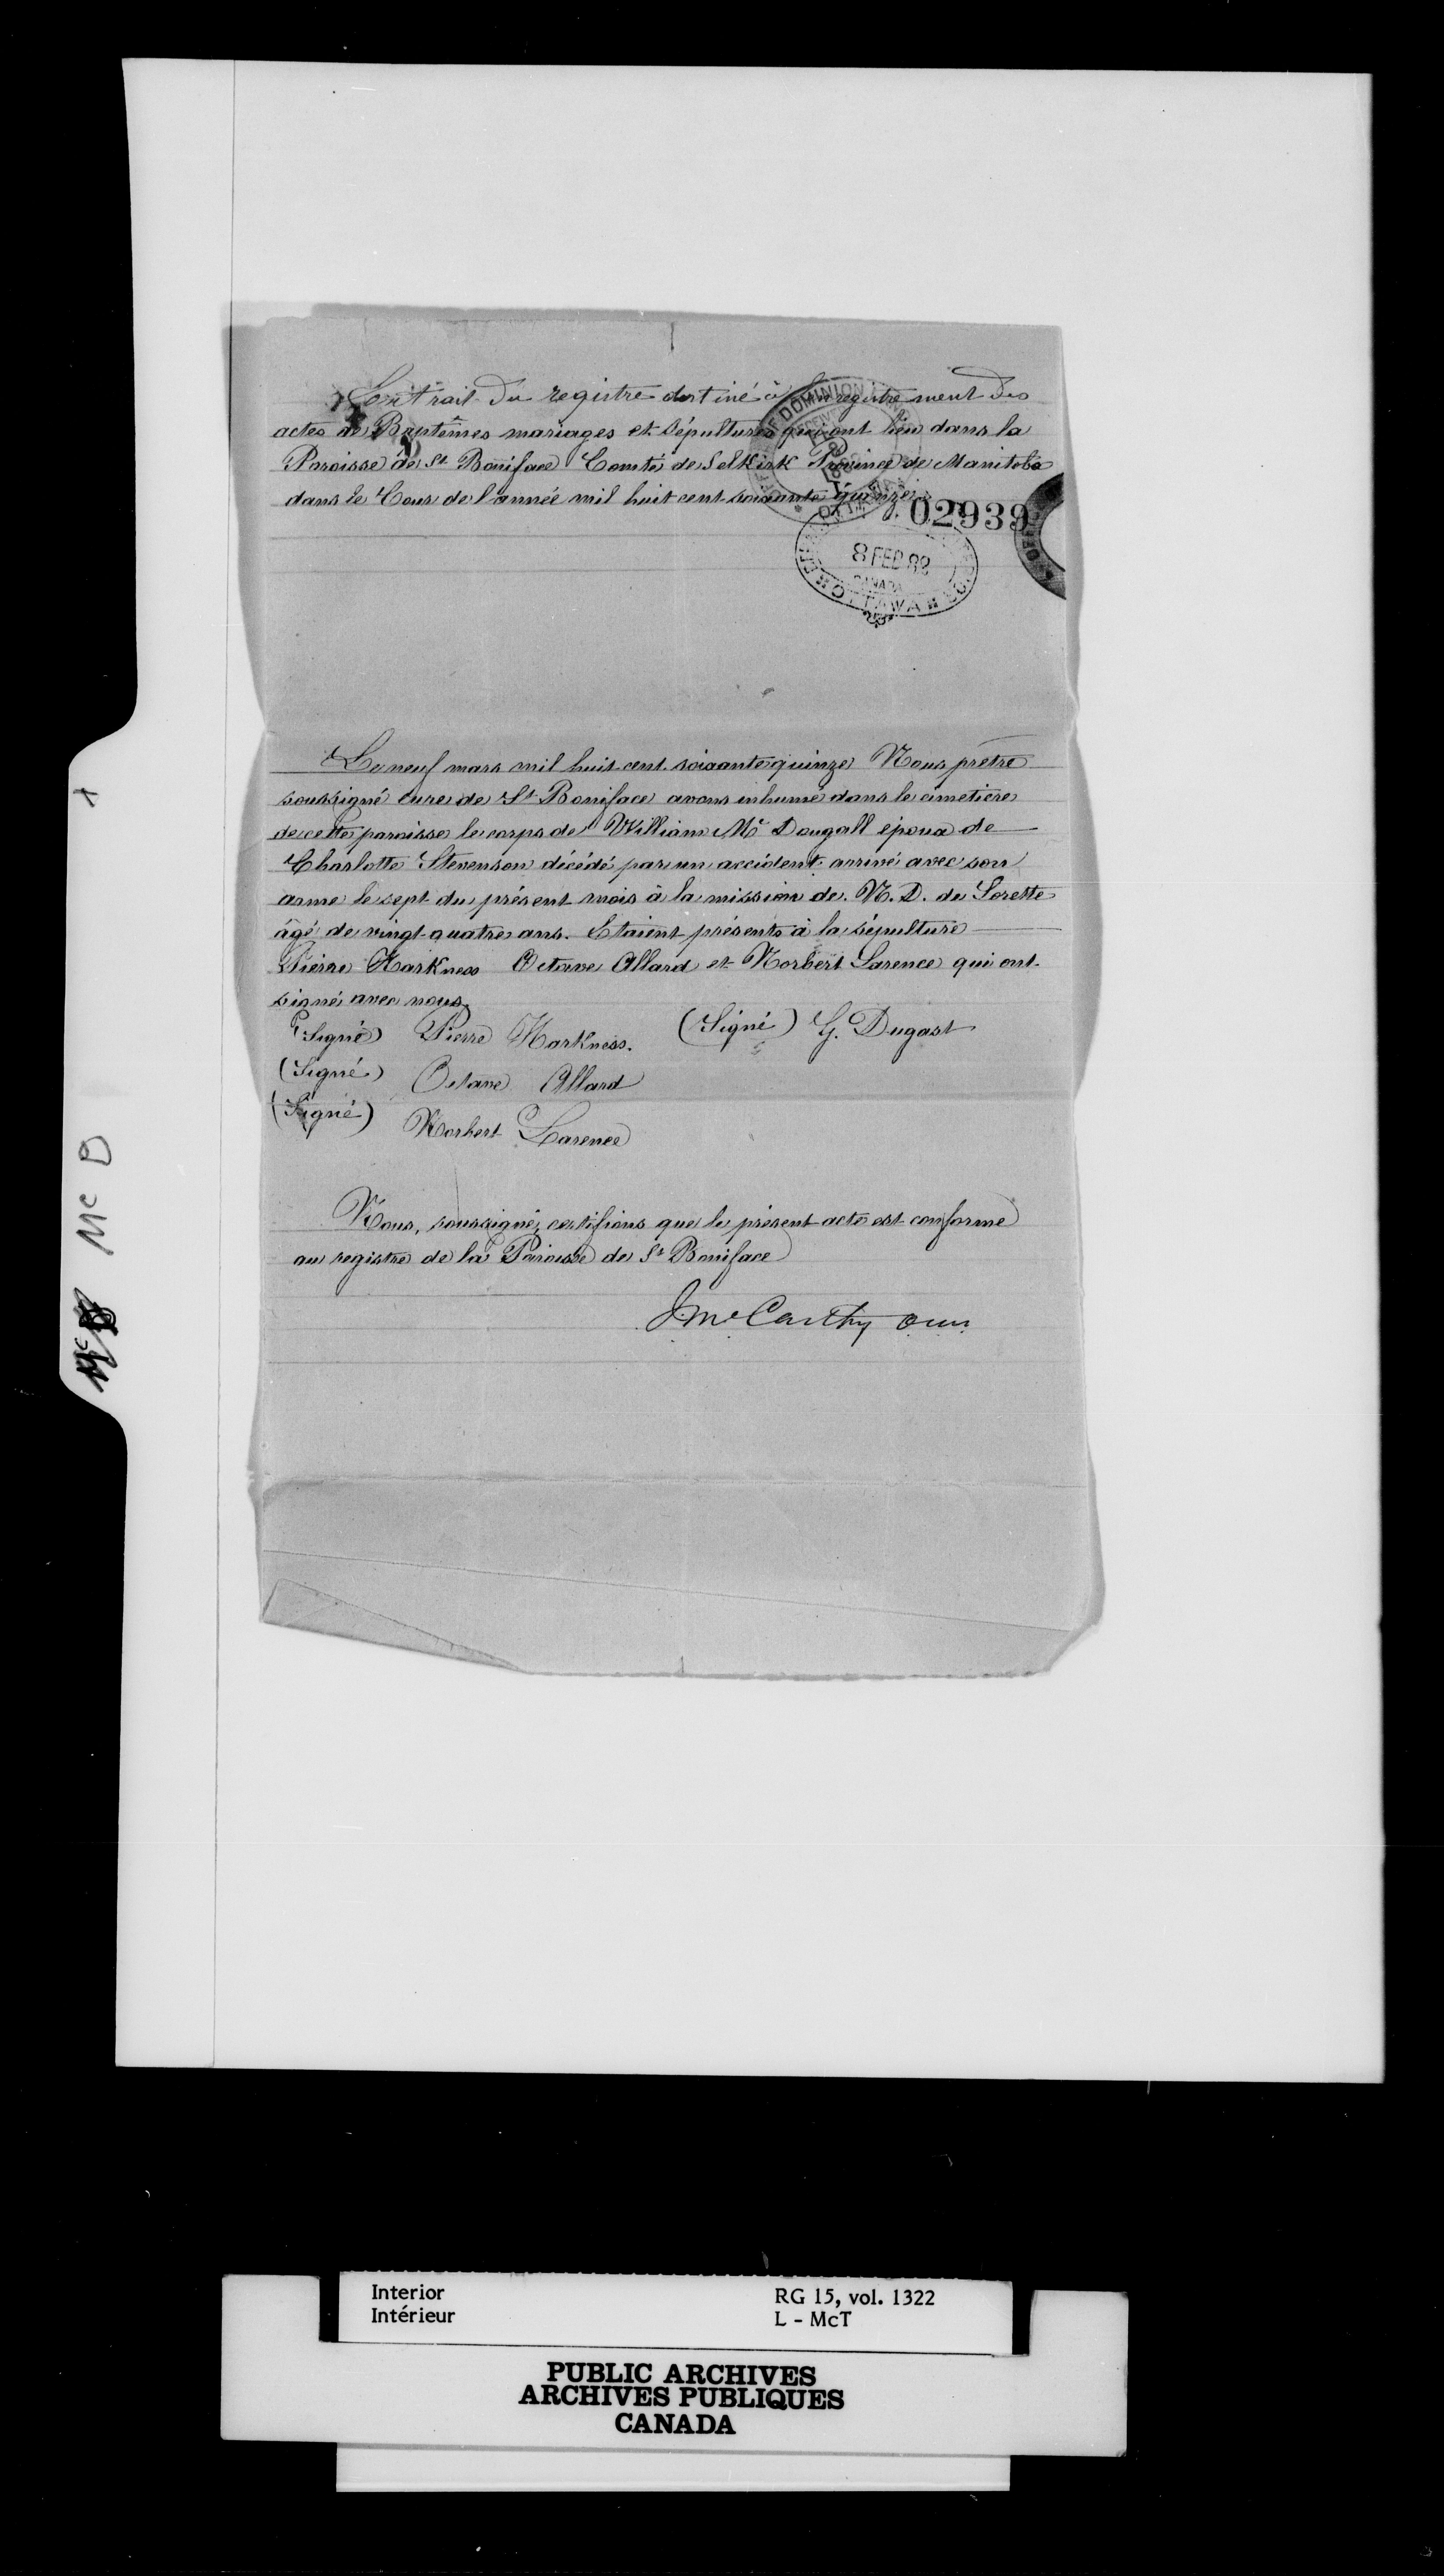 Extrait du registre destiné à l'enregistrement des
actes de Baptêmes mariages et sépultures qui ont lieu dans la
Paroisse de St Boniface Comté de Selkirk Province de Manitoba
dans le Cour de l'année mil huit cent soixante quinze.
02939
8 FEB 88
CANADA
OTTAWA
Le neuf mars mil huit cent soixante quinze Nous prêtre
soussigné curé de St Boniface avons inhumé dans le cimetière
de cette paroisse le corps de William Mc Dougall époux de
Charlotte Stevenson décédé par un accident arrivé avec son
arme le sept du présent mois à la mission de N. D. de Lorette
âgé de vingt-quatre ans. Etaient présents à la sépulture
Pierre Harkness Octave Allard et Norbert Larence qui ont
signé avec nous.
(Signé) Pierre Harkness. (Signé) G. Dugast
(Signé) Octave Allard
(Signé) Norbert Larence
Nous, soussigné, certifions que le présent acte est conforme
au registre de la Paroisse de St Boniface
J. McCarthy o.m.i.
McD
Interior
Intérieur
RG 15, vol. 1322
L - McT
PUBLIC ARCHIVES
ARCHIVES PUBLIQUES
CANADA